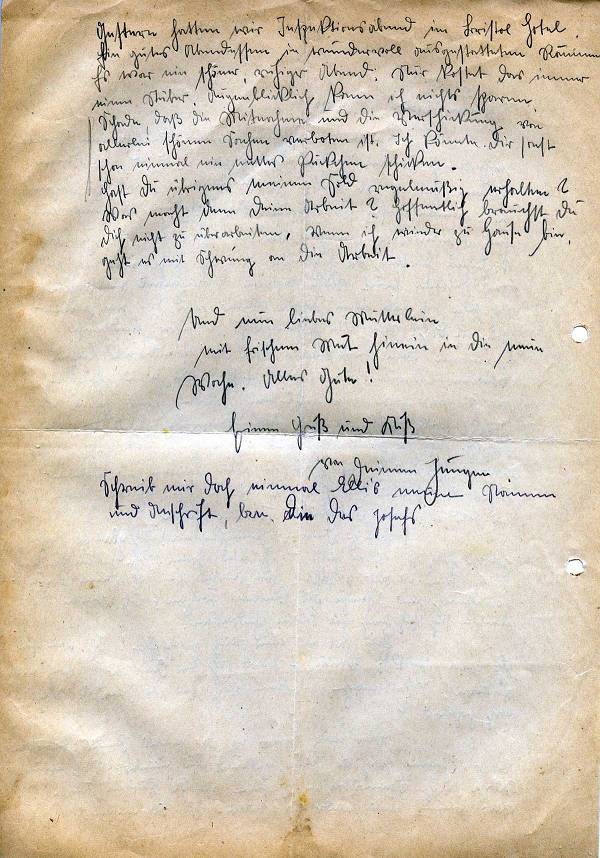 Gestern hatten wir Inspektionsabend im Bristol Hotel.
Ein gutes Abendessen in wundervoll ausgestatteten Räumen
Es war ein schöner, ruhiger Abend. Nur kostet das immer
einen Stüber. Augenblicklich kann ich nichts sparen.
Schade, daß die Mitnahme und die Verschickung von
allerlei schönen Sachen verboten ist. Ich könnte Dir sonst
schon einmal ein nettes Päckchen schicken.
Hast Du übrigens meinen Sold regelmäßig erhalten?
Was macht denn Deine Arbeit? Hoffentlich brauchst Du
Dich nicht zu überarbeiten. Wenn ich wieder zu Hause bin,
geht es mit Schwung an die Arbeit.
Und nun liebes Mütterlein
mit frischem Mut hinein in die neue
Woche. Alles Gute!
Einen Gruß und Kuß
von Deinem Jungen
Schreib mir doch einmal Ellis neuen Namen
und Anschrift, bzw. die des Josefs